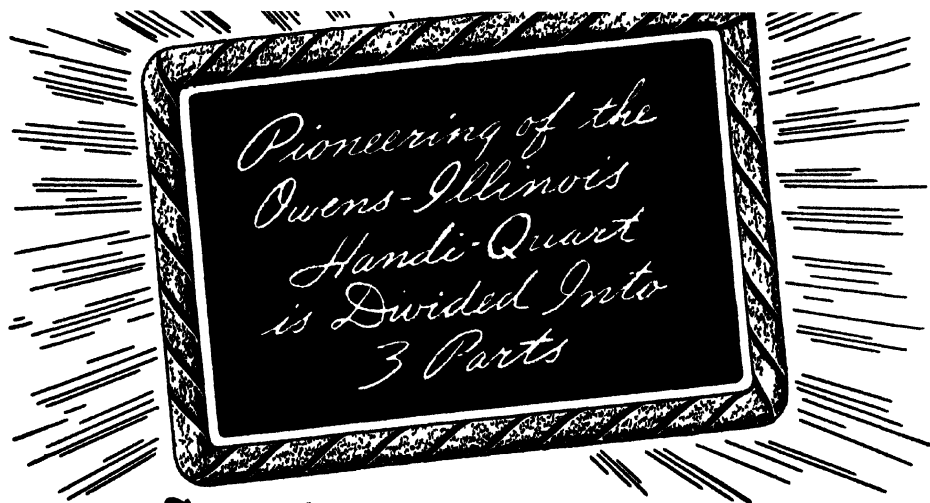 Pioneering of the
Owens-Illinois
Handi-Quart
is Divided Into
3 Parts